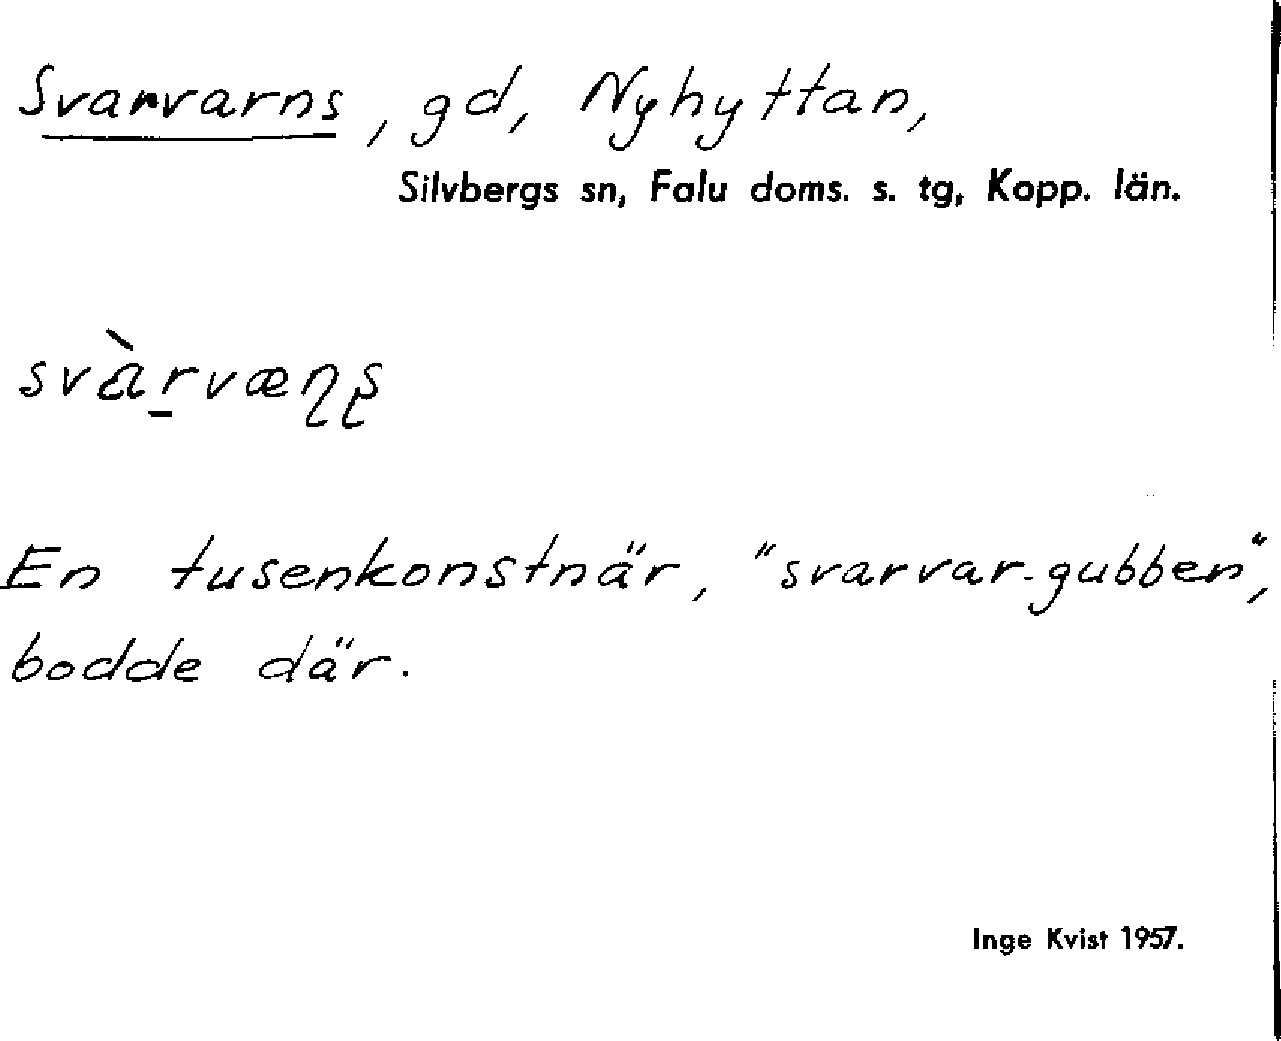 Svarvarns, gd, Nyhyttan,
Silvbergs sn, Falu doms. s. tg, Kopp. län.
svàr̲væɳʂ
En tusenkonstnär, "svarvar-gubben",
bodde där.
Inge Kvist 1957.